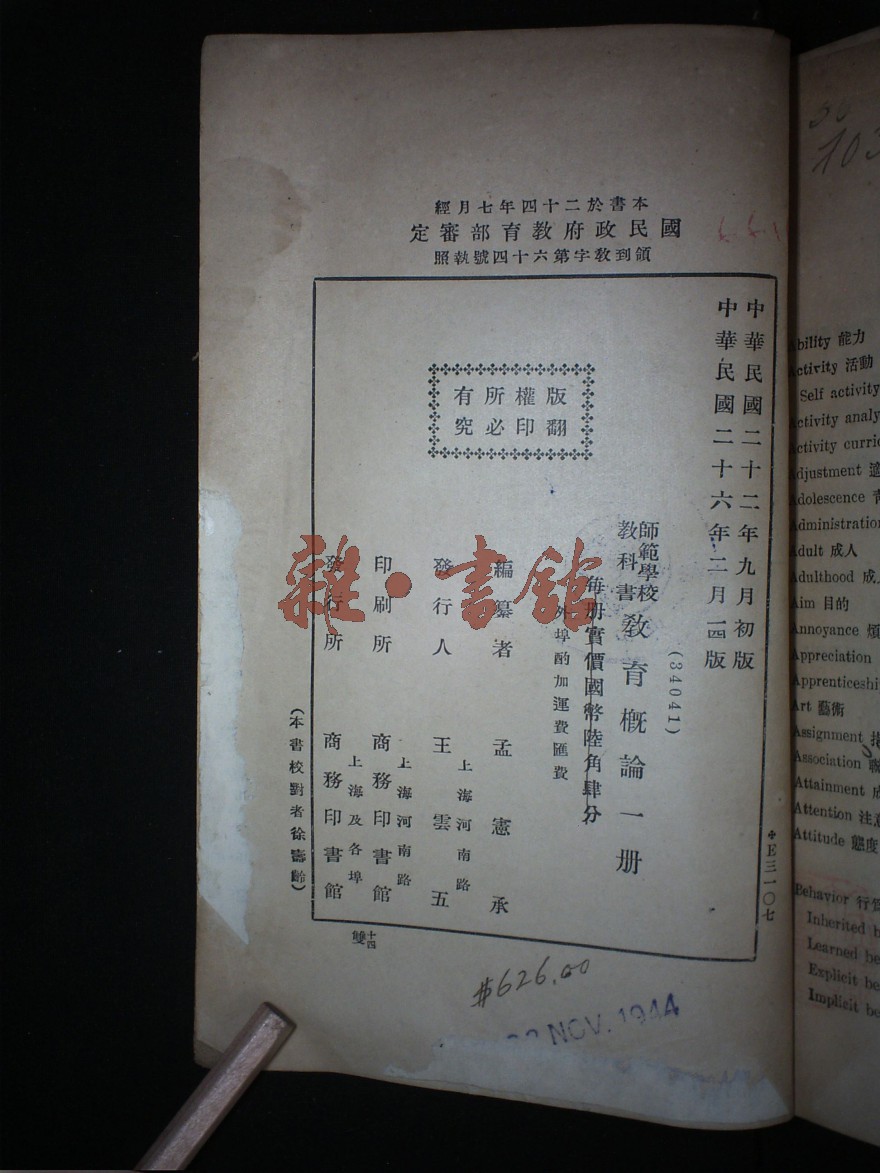 本書於二十四年七月經
國民政府教育部審定
領到敎字第六十四號執照
中華民國二十二年九月初版
中華民國二十六年二月一四版
版權所有
翻印必究
(34041)
師範學校
教科書
敎育概論一册
每册實價國幣陸角肆分
外埠酌加運費匯費
編纂者 孟憲承
發行人 王雲五
上海河南路
印刷所 商務印書館
上海河南路
發行所 商務印書館
上海及各埠
(本書校對者徐壽齡)
E三一〇七
十四
雙
$626.00
NOV. 1944
雜·書館
103
Ability 能力
Activity 活動
Self activity
Activity analy
Activity curric
Adjustment 適
Adolescence 靑
Administration
Adult 成人
Adulthood 成
Aim 目的
Annoyance 煩
Appreciation
Apprenticeshi
Art 藝術
Assignment 指
Association 聯
Attainment 成
Attention 注意
Attitude 態度
Behavior 行
Inherited b
Learned be
Explicit be
Implicit be